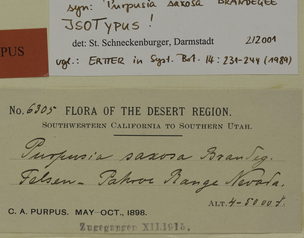 syn: "Purpusia saxosa BRANDEGEE
ISOTYPUS!
det: St. Schneckenburger, Darmstadt 2/2001
PUS
vgl.: ERTTER in Syst. Bot. 14: 231-244 (1989)
No. 6305 FLORA OF THE DESERT REGION.
SOUTHWESTERN CALIFORNIA TO SOUTHERN UTAH.
Purpusia saxosa Brandeg.
Felsen - Pahroc Range Nevada.
ALT. 4-5000 ft.
C. A. PURPUS. MAY-OCT., 1898.
Zugegangen XII.1915.